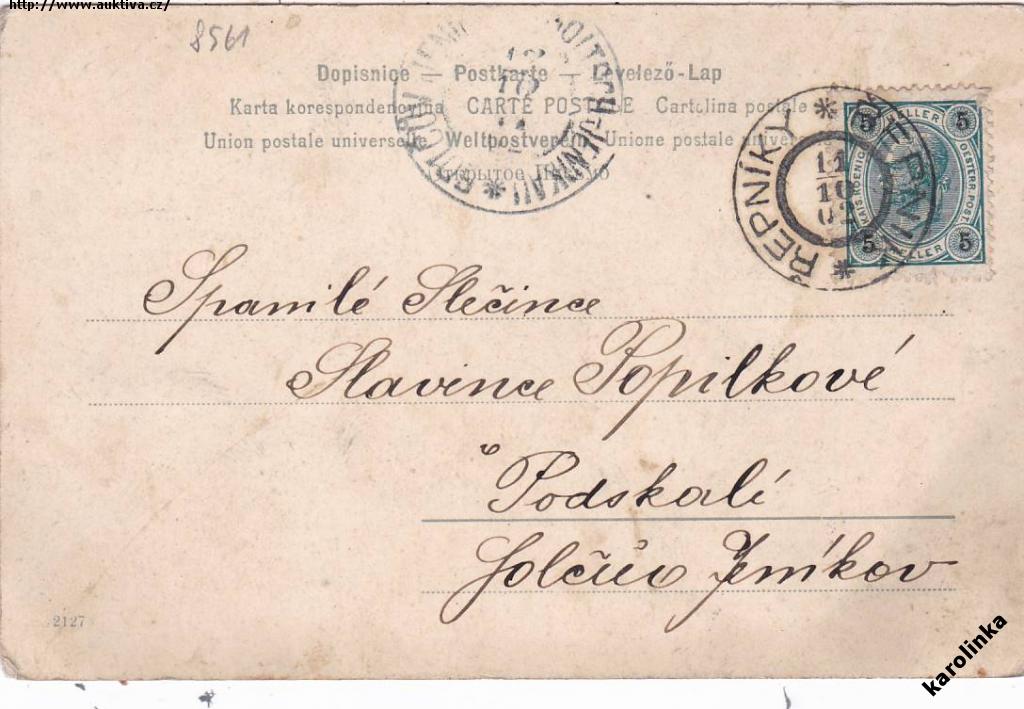 http://www.auktiva.cz/
8561
Dopisnice — Postkarte — Levelező-Lap
Karta korespondencyjna CARTE POSTALE Cartolina postale
Union postale universelle Weltpostverein Unione postale
Открытое Письмо
12
10
ŘEPNÍKY
11
10
02
5 HELLER 5
KAIS. KOENIGL. OESTERR. POST.
5 HELLER 5
Spanilé Slečince
Slavince Popilkové
Podskalí
Golčův Jeníkov
2127
karolinka